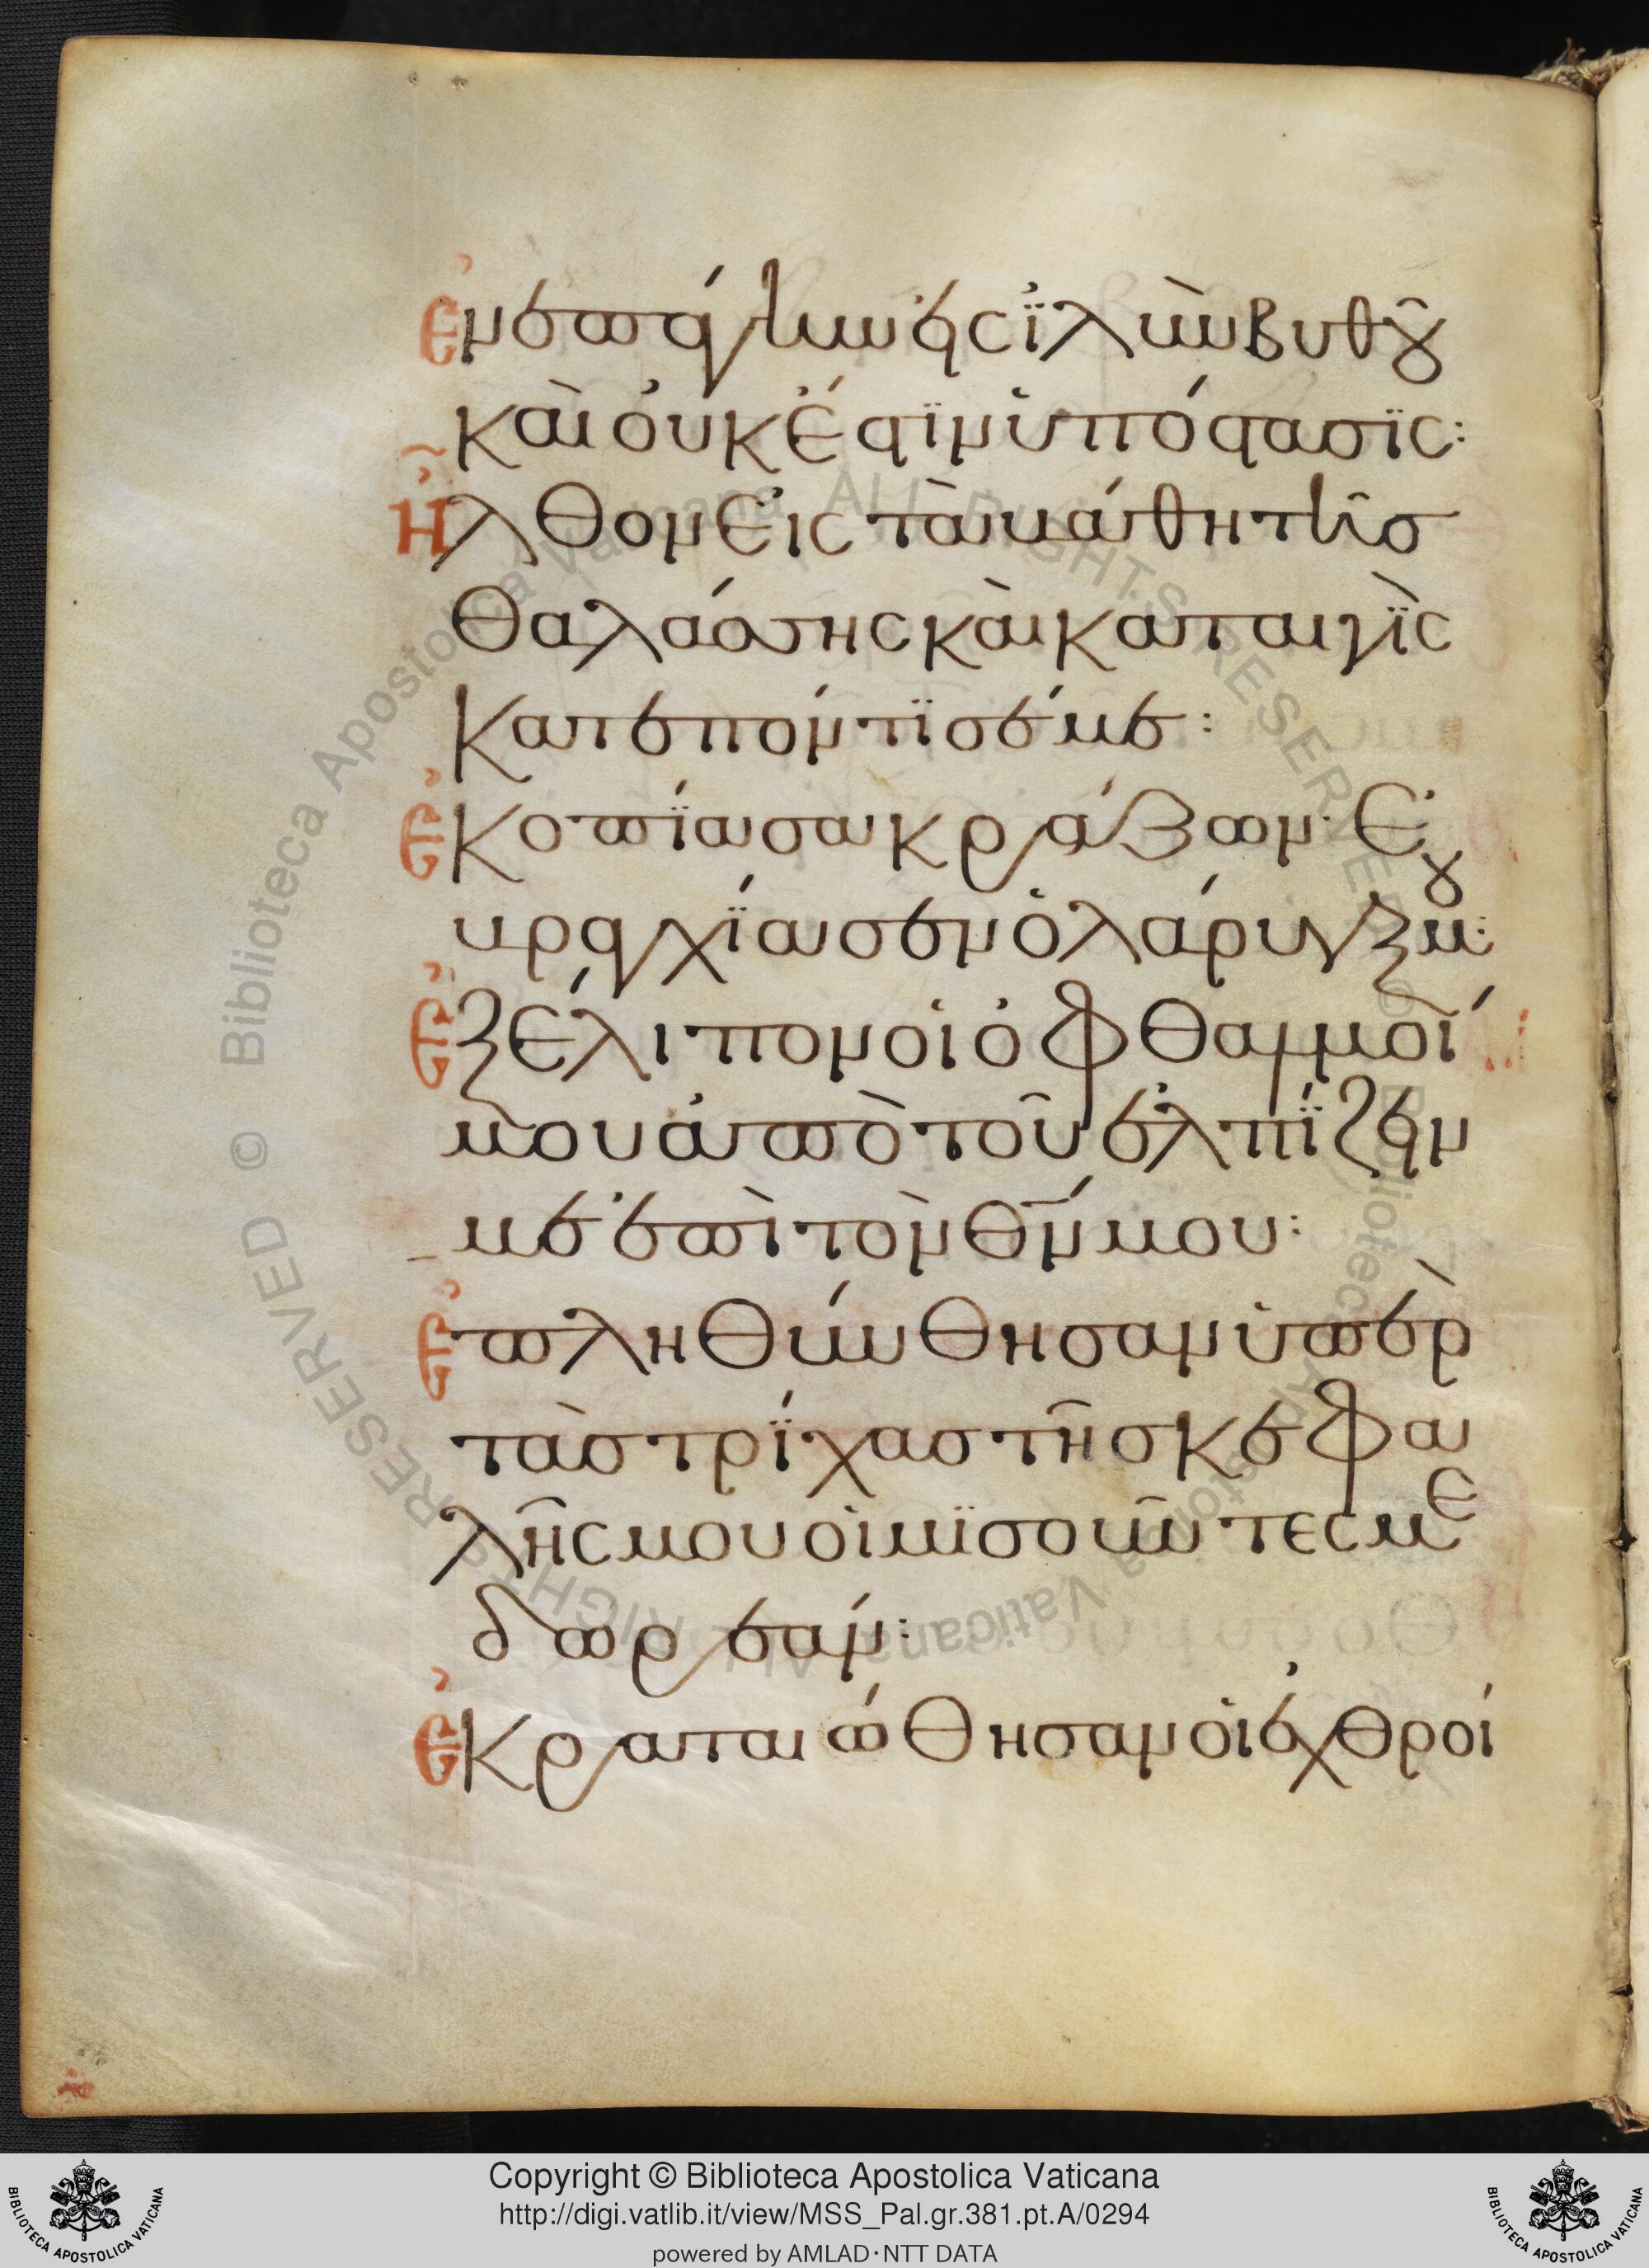 Ἐνεπάγην εἰς ἰλὺν βυθοῦ
καὶ οὐκ ἔστϊν ὑπόστασϊς:
Ἦλθον εἰς τὰ βάθη τῆσ
θαλάσσης καὶ καταιγῒς
κατεπόντϊσέ με:
Ἐκοπΐασα κράζων· ἐ
βραγχΐασεν ὁ λάρυγξ μου:
Ἐξέλιπον οἱ ὀφθαλμοί
μου ἀπὸ τοῦ ἐλπΐζειν
με ἐπὶ τὸν θν μου:
Ἐπληθύνθησαν ὑπὲρ
τὰσ τρΐχασ τῆσ κεφα
λῆς μου οἱ μϊσοῦντες με
δωρεάν:
Ἐκραταιώθησαν οἱ ἐχθροί
Copyright © Biblioteca Apostolica Vaticana
http://digi.vatlib.it/view/MSS_Pal.gr.381.pt.A/0294
powered by AMLAD·NTT DATA
BIBLIOTECA APOSTOLICA VATICANA
BIBLIOTECA APOSTOLICA VATICANA
© Biblioteca Apostolica Vaticana ALL RIGHTS RESERVED
© Biblioteca Apostolica Vaticana ALL RIGHTS RESERVED